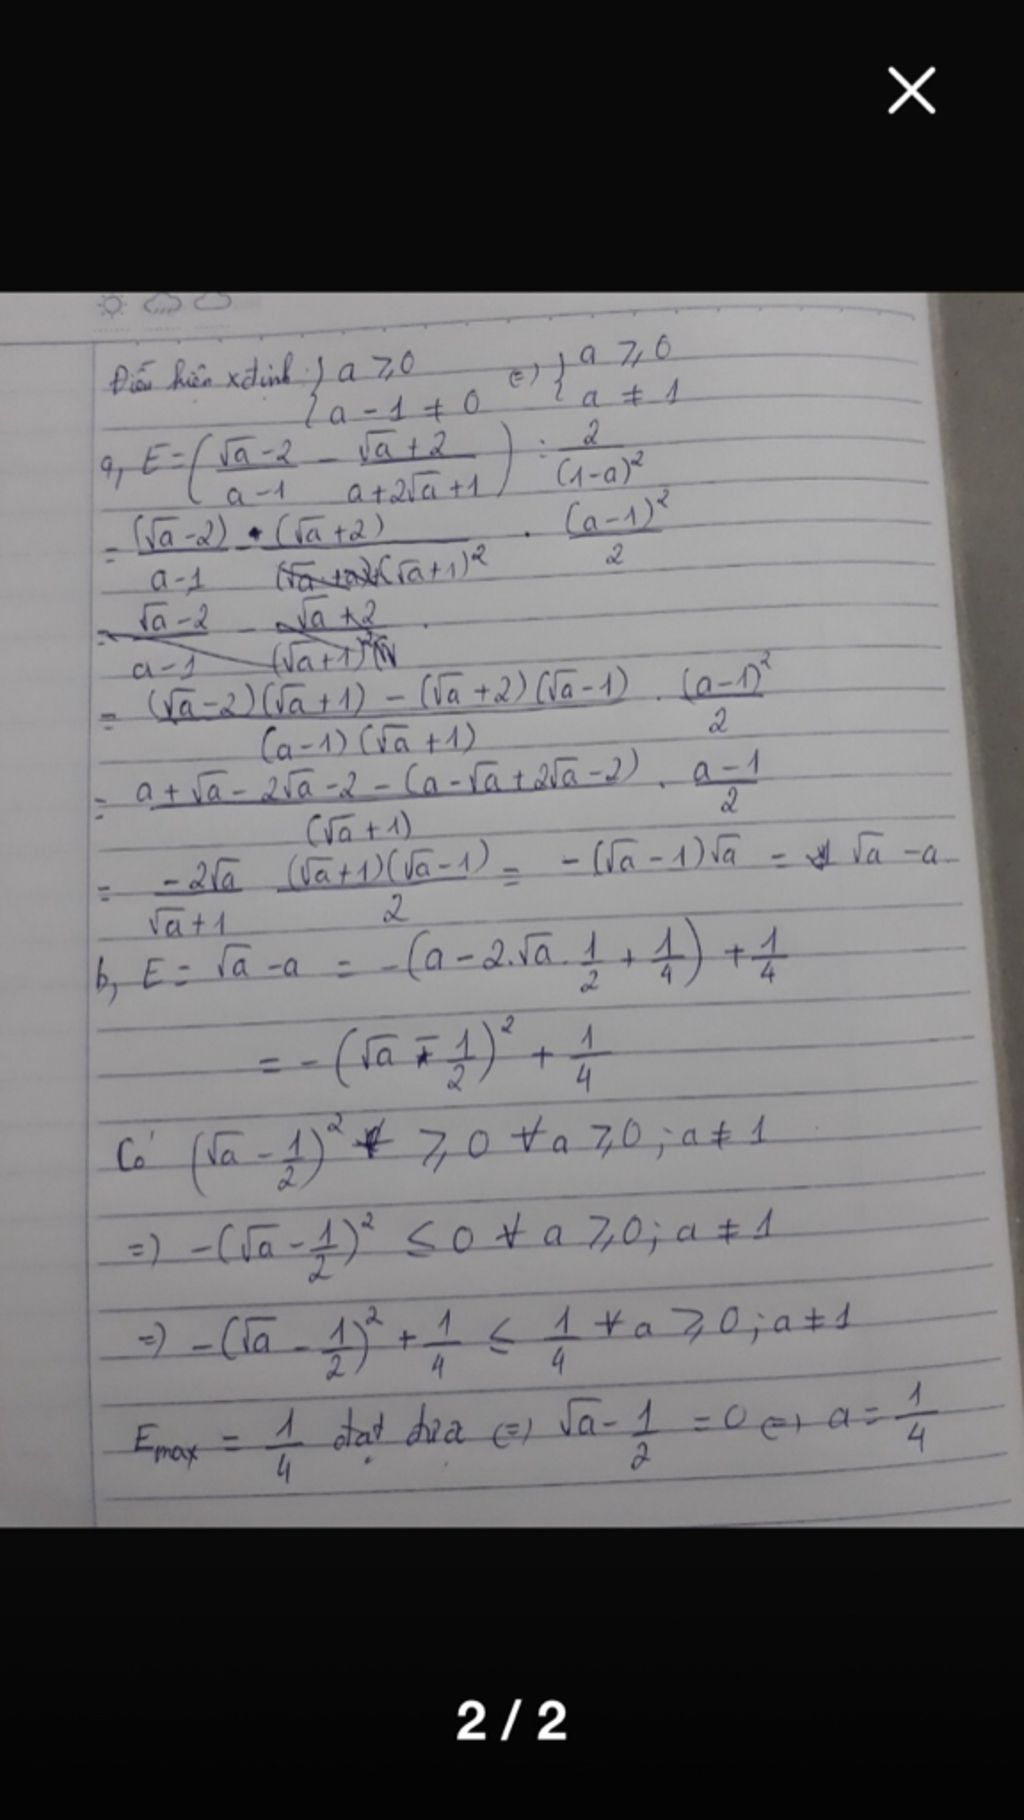 Điều kiện xđịnh { a ≥ 0 <=> { a ≥ 0
{ a - 1 ≠ 0 { a ≠ 1
a, E = ( (√a - 2)/(a - 1) - (√a + 2)/(a + 2√a + 1) ) : 2/(1 - a)²
= (√a - 2)/(a - 1) - (√a + 2)/(√a + 1)² . (a - 1)²/2
= (√a - 2)/(a - 1) - (√a + 2)/(√a + 1)² .
= ((√a - 2)(√a + 1) - (√a + 2)(√a - 1))/((a - 1)(√a + 1)) . (a - 1)²/2
= (a + √a - 2√a - 2 - (a - √a + 2√a - 2))/(√a + 1) . (a - 1)/2
= -2√a/(√a + 1) (√a + 1)(√a - 1)/2 = -(√a - 1)√a = √a - a
b, E = √a - a = -(a - 2.√a . 1/2 + 1/4) + 1/4
= -(√a - 1/2)² + 1/4
Có (√a - 1/2)² ≥ 0 ∀ a ≥ 0 ; a ≠ 1
=> -(√a - 1/2)² ≤ 0 ∀ a ≥ 0 ; a ≠ 1
=> -(√a - 1/2)² + 1/4 ≤ 1/4 ∀ a ≥ 0 ; a ≠ 1
Emax = 1/4 đạt được <=> √a - 1/2 = 0 <=> a = 1/4
2 / 2